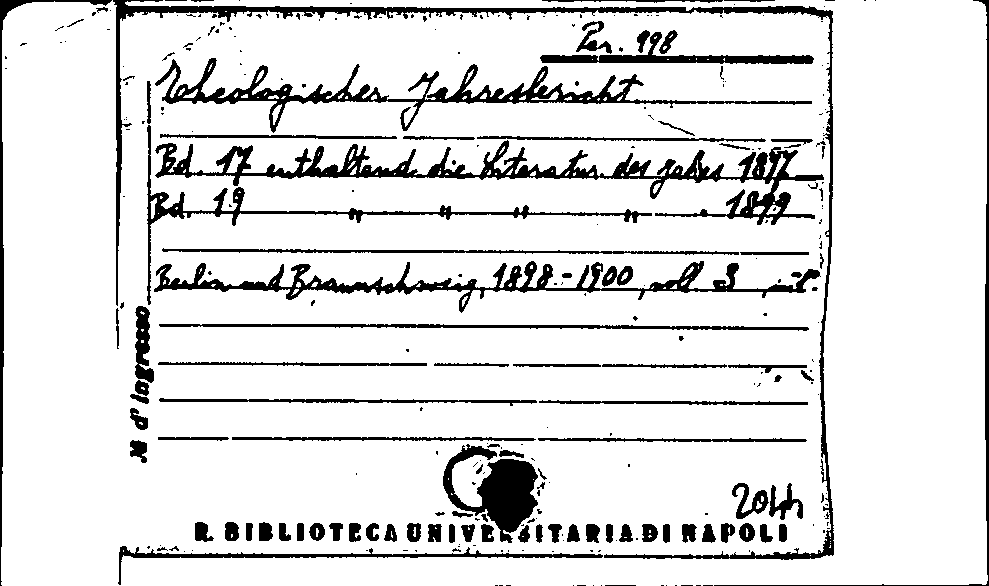 Per. 998
Theologischer Jahresbericht
Bd. 17 enthaltend die Literatur des Jahres 1897
Bd. 19 " " " " . 1899
Berlin und Braunschweig, 1898-1900, voll 3 in 8°.
N d'ingresso
2044
R. BIBLIOTECA UNIVERSITARIA DI NAPOLI